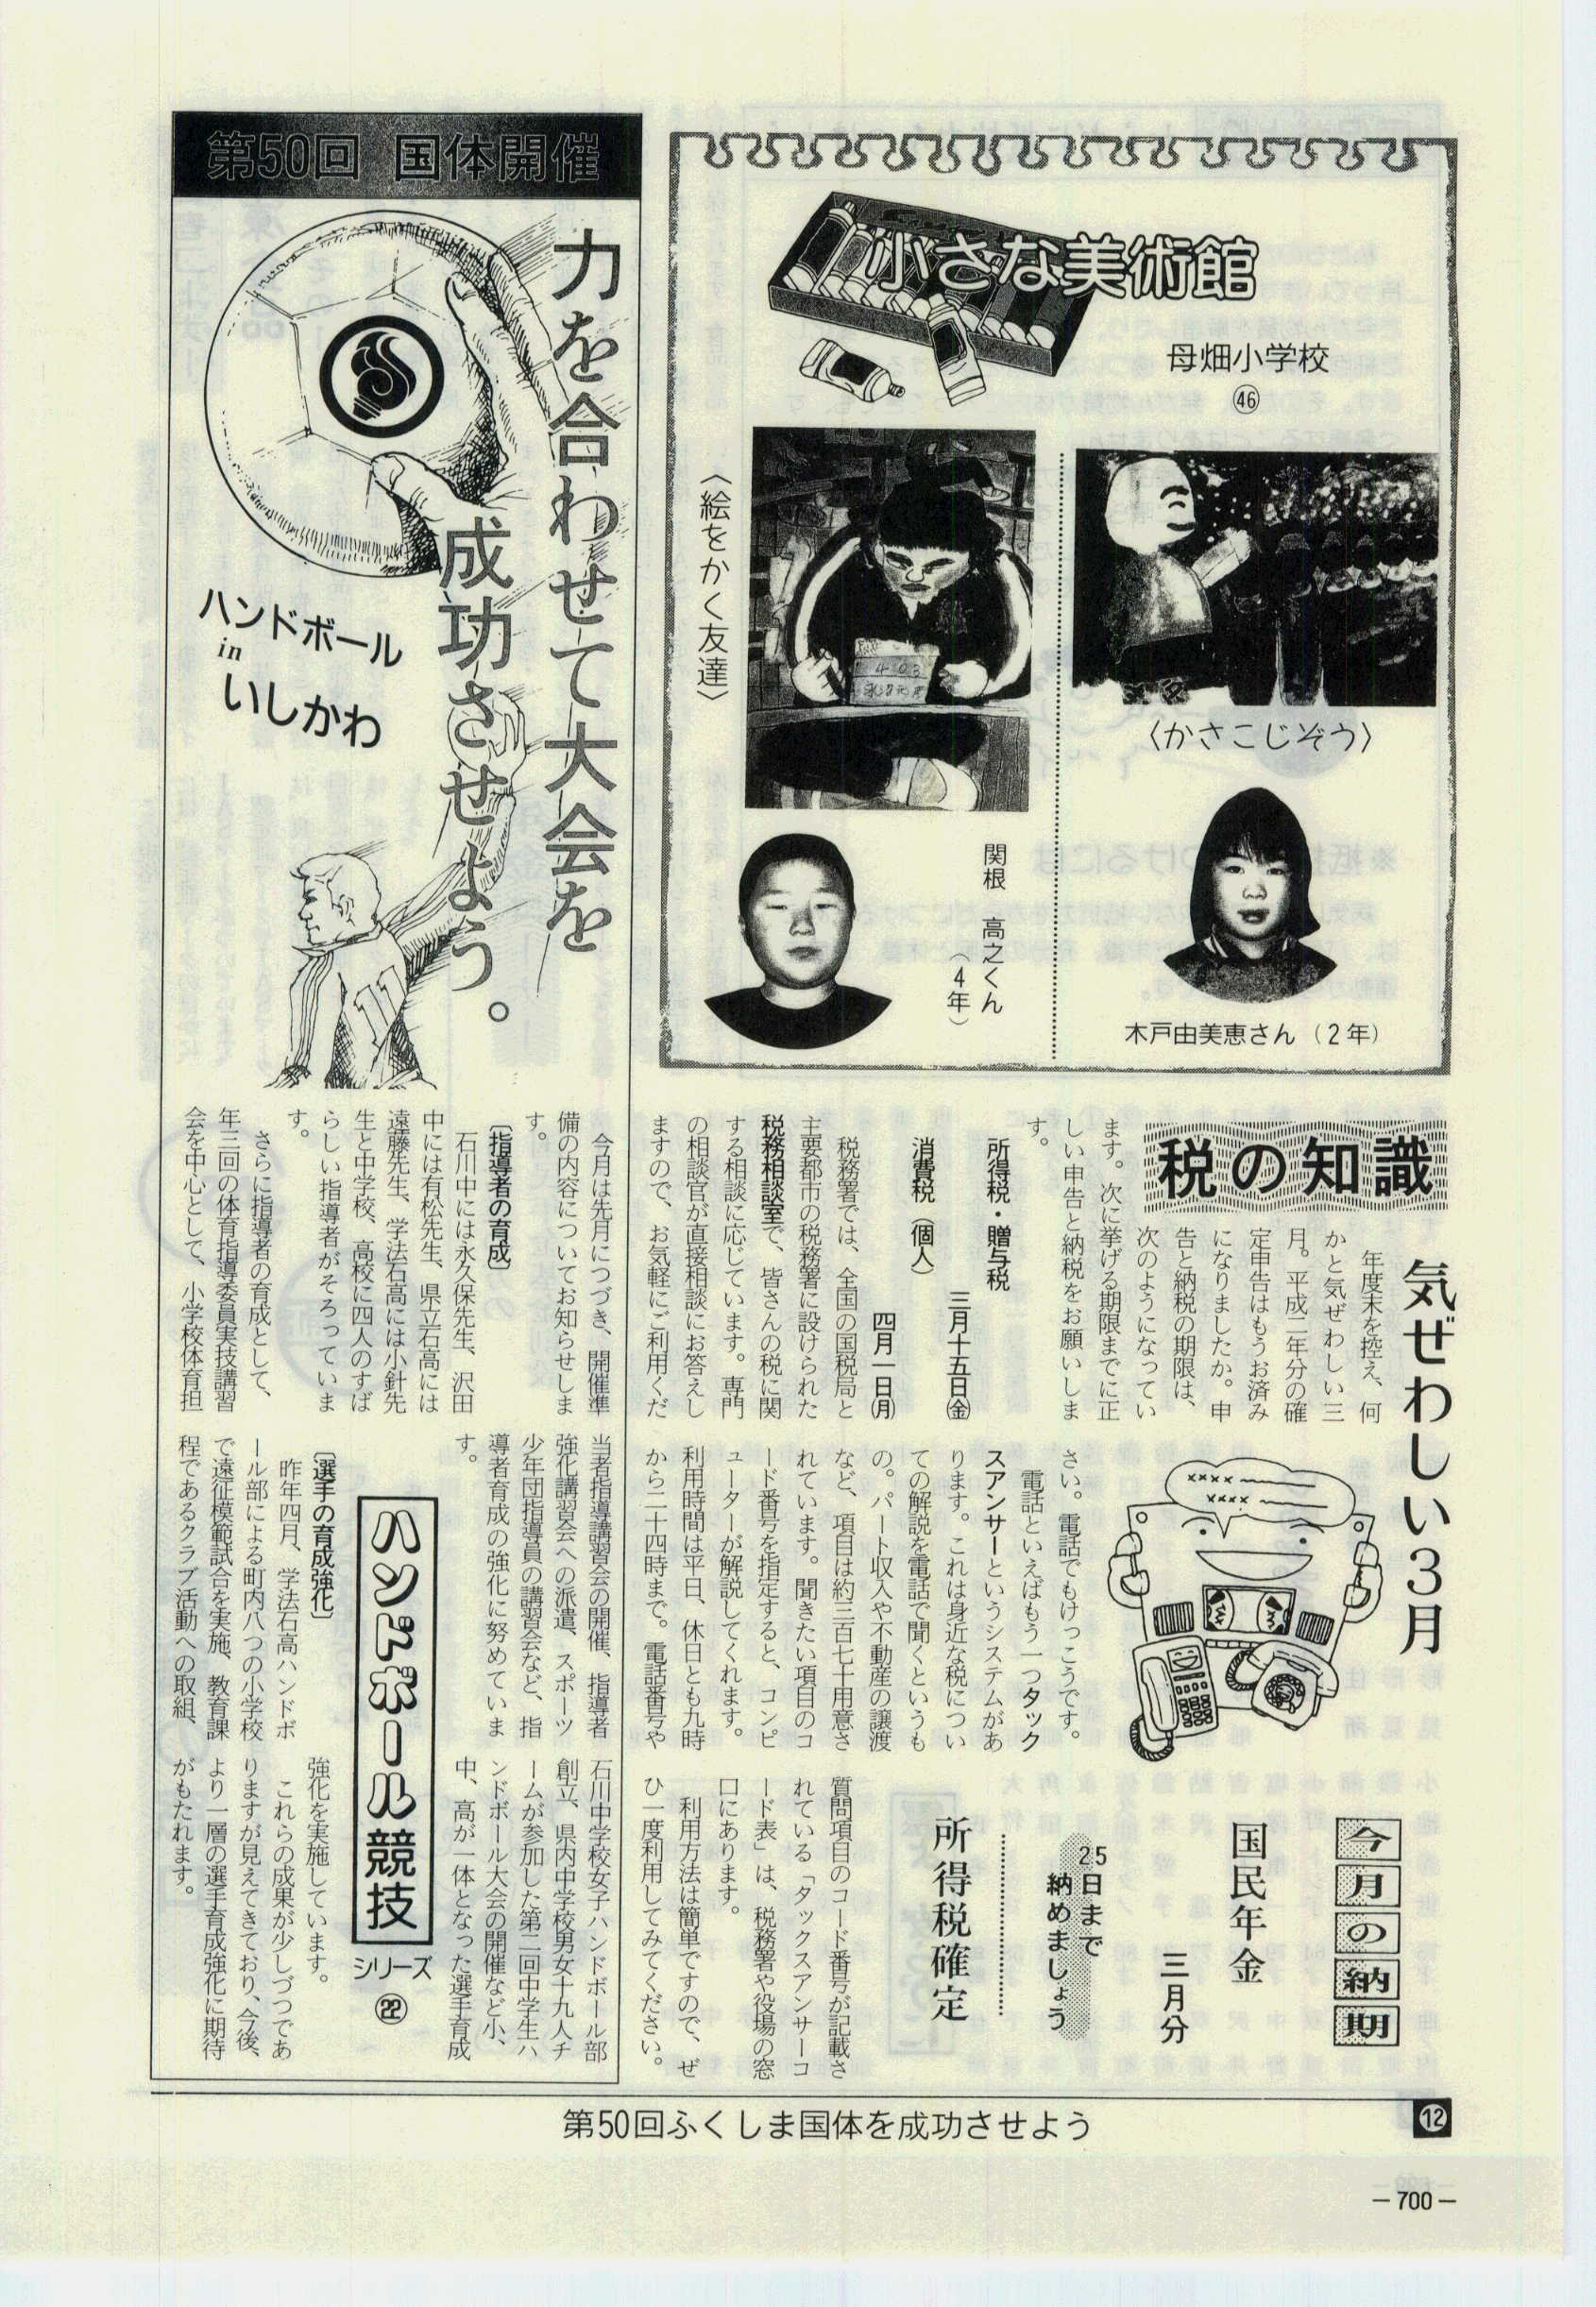 小さな美術館
母畑小学校
㊻
〈かさこじぞう〉
木戸由美恵さん（2年）
〈絵をかく友達〉
関根　高之くん
（4年）
第50回 国体開催
力を合わせて大会を
成功させよう。
ハンドボール
in
いしかわ
税の知識
気ぜわしい3月
年度末を控え、何
かと気ぜわしい三
月。平成二年分の確
定申告はもうお済み
になりましたか。申
告と納税の期限は、
次のようになってい
ます。次に挙げる期限までに正
しい申告と納税をお願いしま
す。
所得税・贈与税
三月十五日㈮
消費税（個人）
四月一日㈪
税務署では、全国の国税局と
主要都市の税務署に設けられた
税務相談室で、皆さんの税に関
する相談に応じています。専門
の相談官が直接相談にお答えし
ますので、お気軽にご利用くだ
さい。電話でもけっこうです。
電話といえばもう一つタック
スアンサーというシステムがあ
ります。これは身近な税につい
ての解説を電話で聞くというも
の。パート収入や不動産の譲渡
など、項目は約三百七十用意さ
れています。聞きたい項目のコ
ード番号を指定すると、コンピ
ューターが解説してくれます。
利用時間は平日、休日とも九時
から二十四時まで。電話番号や
質問項目のコード番号が記載さ
れている「タックスアンサーコ
ード表」は、税務署や役場の窓
口にあります。
利用方法は簡単ですので、ぜ
ひ一度利用してみてください。
今月の納期
国民年金
三月分
25日まで
納めましょう
所得税確定
今月は先月につづき、開催準
備の内容についてお知らせしま
す。
〔指導者の育成〕
石川中には永久保先生、沢田
中には有松先生、県立石高には
遠藤先生、学法石高には小針先
生と中学校、高校に四人のすば
らしい指導者がそろっていま
す。
さらに指導者の育成として、
年三回の体育指導委員実技講習
会を中心として、小学校体育担
当者指導講習会の開催、指導者
強化講習会への派遣、スポーツ
少年団指導員の講習会など、指
導者育成の強化に努めていま
す。
ハンドボール競技
シリーズ
㉒
〔選手の育成強化〕
昨年四月、学法石高ハンドボ
ール部による町内八つの小学校
で遠征模範試合を実施、教育課
程であるクラブ活動への取組、
石川中学校女子ハンドボール部
創立、県内中学校男女十九人チ
ームが参加した第二回中学生ハ
ンドボール大会の開催など小、
中、高が一体となった選手育成
強化を実施しています。
これらの成果が少しづつであ
りますが見えてきており、今後、
より一層の選手育成強化に期待
がもたれます。
第50回ふくしま国体を成功させよう
12
—700—